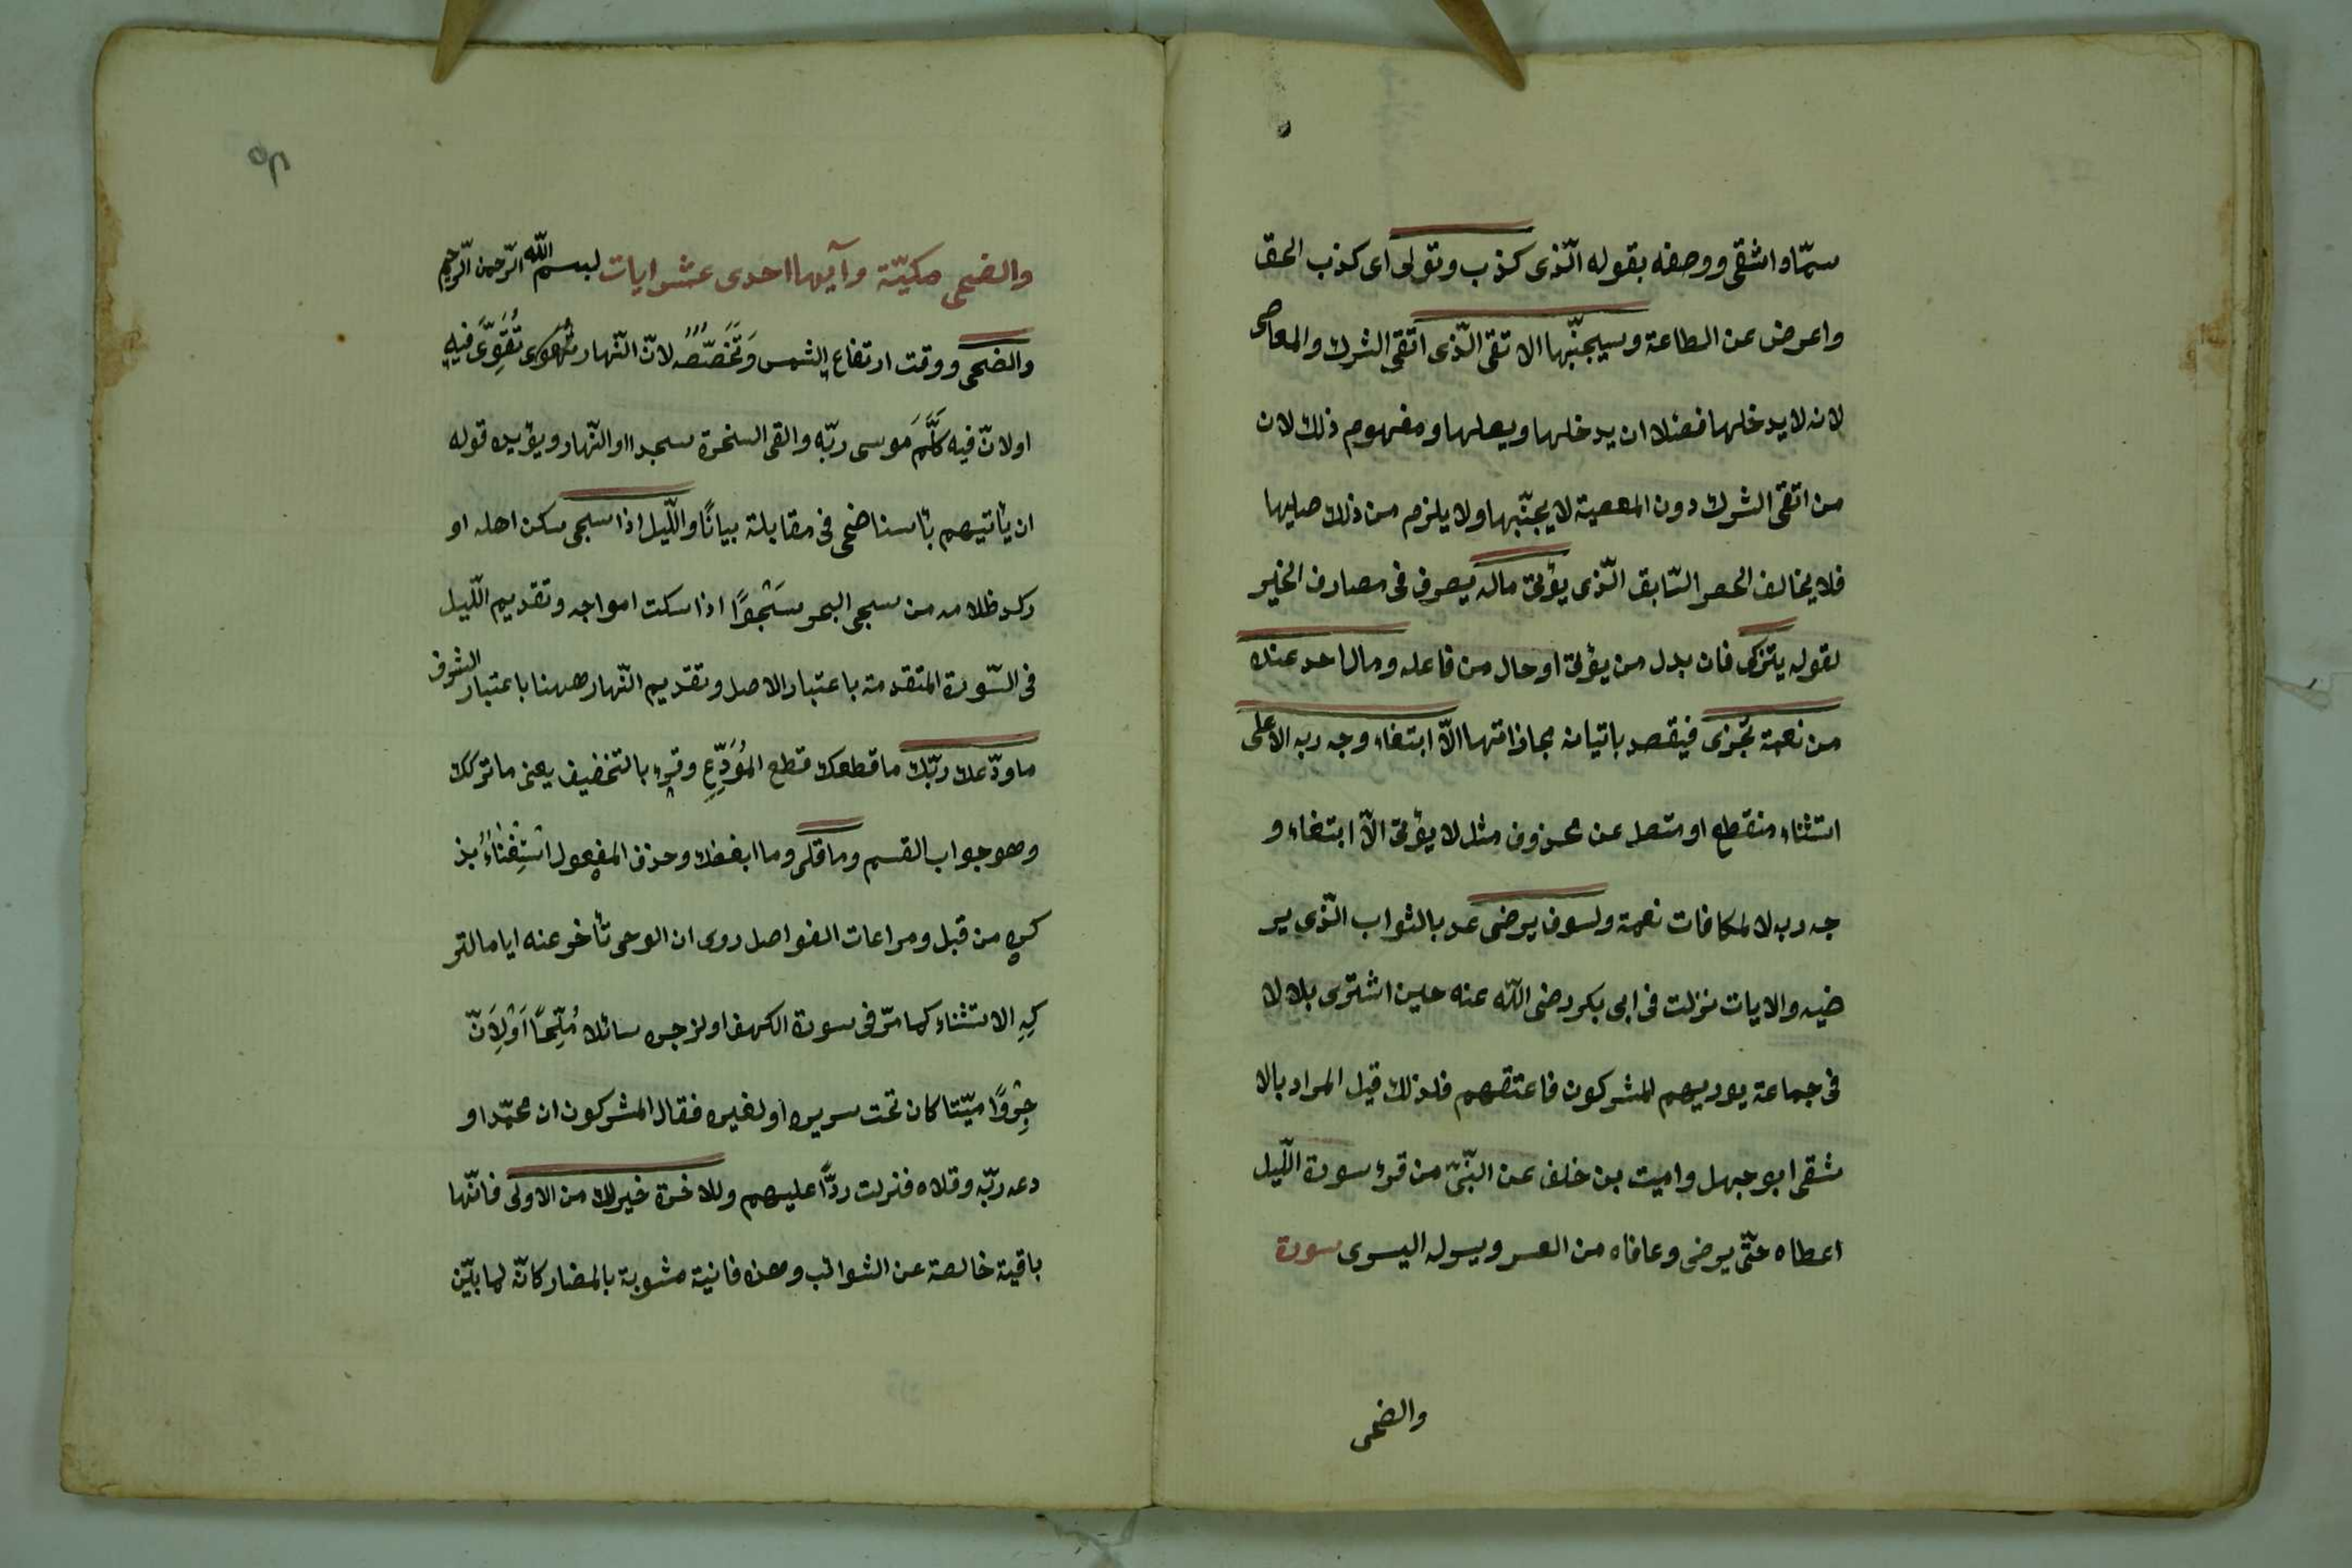 سمّاه اشقى ووصفه بقوله الّذى كذب وتولى اى كذب الحق
واعرض عن الطاعة وسيجنّبها الاتقى الّذى اتقى الشرك والمعاصى
لانه لا يدخلها فضلا ان يدخلها ويصلها ومفهوم ذلك لان
من اتقى الشرك دون المعصية لا يجنّبها ولا يلزم من ذلك صليها
فلا يخالف الحصر السّابق الّذى يؤتى ماله يصرف فى مصارف الخير
لقوله يتزكى فان بدل من يؤتى او حال من فاعله وما لاحد عنده
من نعمة تُجزى فيقصد باتيانه مجازاتها الّا ابتغاء وجه ربه الاعلى
استثناء منقطع او متصل عن محذوف مثل لا يؤتى الّا ابتغاء و
جه ربه لا لمكافات نعمة ولسوف يرضى عد بالثواب الّذى ير
ضيه والايات نزلت فى ابى بكر رضى اللّه عنه حين اشترى بلالا
فى جماعة يوديهم المشركون فاعتقهم فلذلك قيل المراد بالا
شقى ابو جهل واميت بن خلف عن النّبىّ من قرء سورة اللّيل
اعطاه حتّى يرضى وعافاه من العسر ويسر له اليسرى سورة
والضحى
والضحى مكيّة وآيها احدى عشر ايات بسم اللّه الرّحمن الرّحيم
والضحى ووقت ارتفاع الشمس وَتَخَصّصُه لانّ النّهار يقوى فيه
اولانّ فيه كَلَّمَ موسى ربّه والقى السخرة سجدا او النّهار ويؤيده قوله
ان يأتيهم بأسنا ضحى فى مقابلة بياتًا واللّيل اذا سجى سكن اهله او
ركد ظلامه من سجى البحر سَجْوًا اذا سكت امواجه وتقديم اللّيل
فى السّورة المتقدمة باعتبار الاصل وتقديم النّهار ههنا باعتبار الشرف
ما ودّعك ربّك ما قطعك قطع المُوَدِّعِ وقرء بالتخفيف يعنى ما تركك
وهو جواب القسم وما قلى وما ابغضك وحذف المفعول اسْتِغْنَاءً بذ
كره من قبل ومراعات الفواصل روى ان الوحى تأخر عنه اياما لتر
كِهِ الاستثناء كما مرّ فى سورة الكهف او لزجره سائلا مُلِحًّا اَوْلِاَنّ
جِرْوًا ميّتا كان تحت سريره او لغيره فقال المشركون ان محمّدا و
دعه ربّه وقلاه فنزلت ردًّا عليهم وللاخرة خير لك من الاولى فانّها
باقية خالصة عن الشوائب وهذه فانية مشوبة بالمضار كانّه لما بيّن